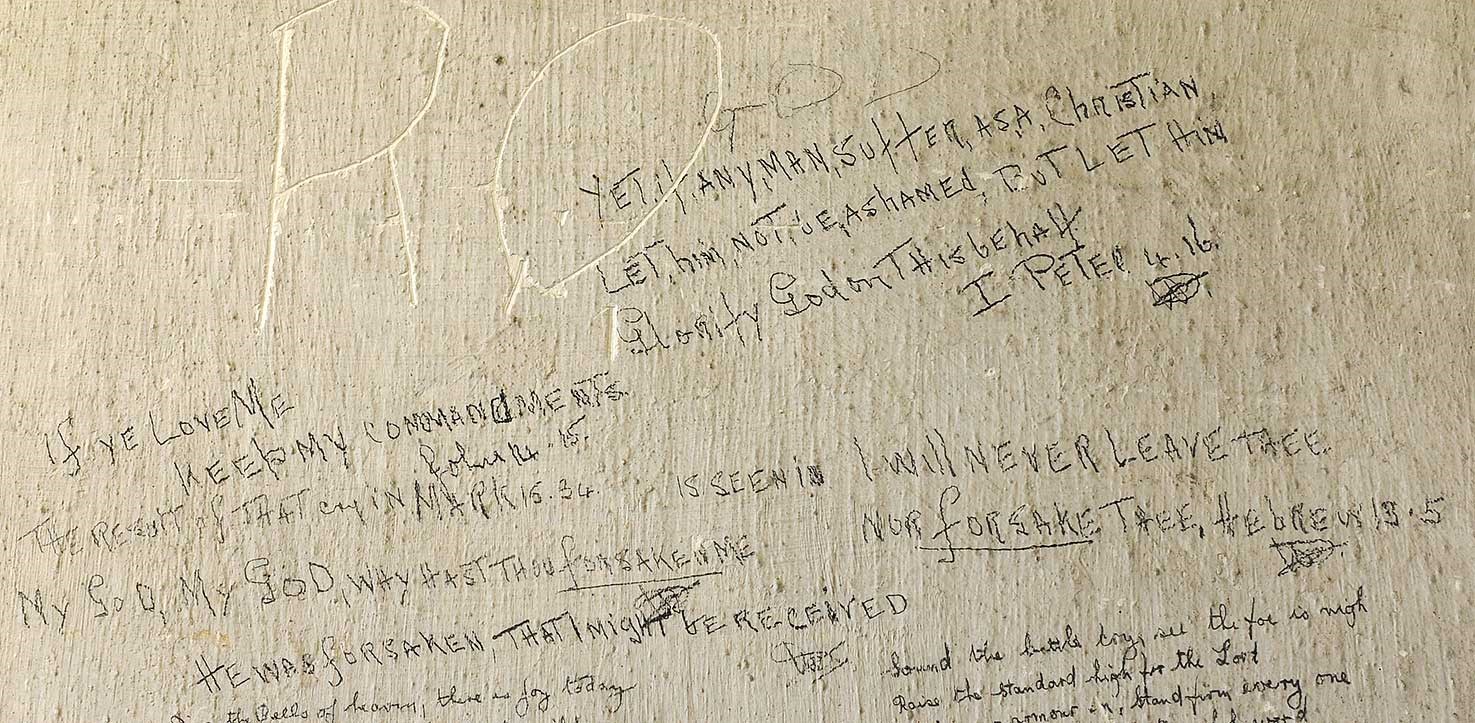 R Q
YET, if, ANY, MAN, SUffER, AS, A, ChRISTIAN
LET, hiM, NOT, bE, AShAMEd, BUT LET HiM
Glorify God on THis behalf
I PETER 4.16.
If YE LOVE ME
KEEP MY COMMANDMENTS.
John 14.15.
THE RESULT of THAT cry iN MARK 15.34. IS SEEN in
I Will NEVER LEAVE THEE
NOR forSAKE THEE, HEbREWS 13.5
MY GOD, MY GOD, WHY HAST THOU forSAKEN ME
HE WAS forSAKEN, THAT I MIGHT bE RECEIVED
the Bells of heaven, there is joy today
Sound the battle cry, see the foe is nigh
Raise the standard high for the Lord
armour on, stand firm every one